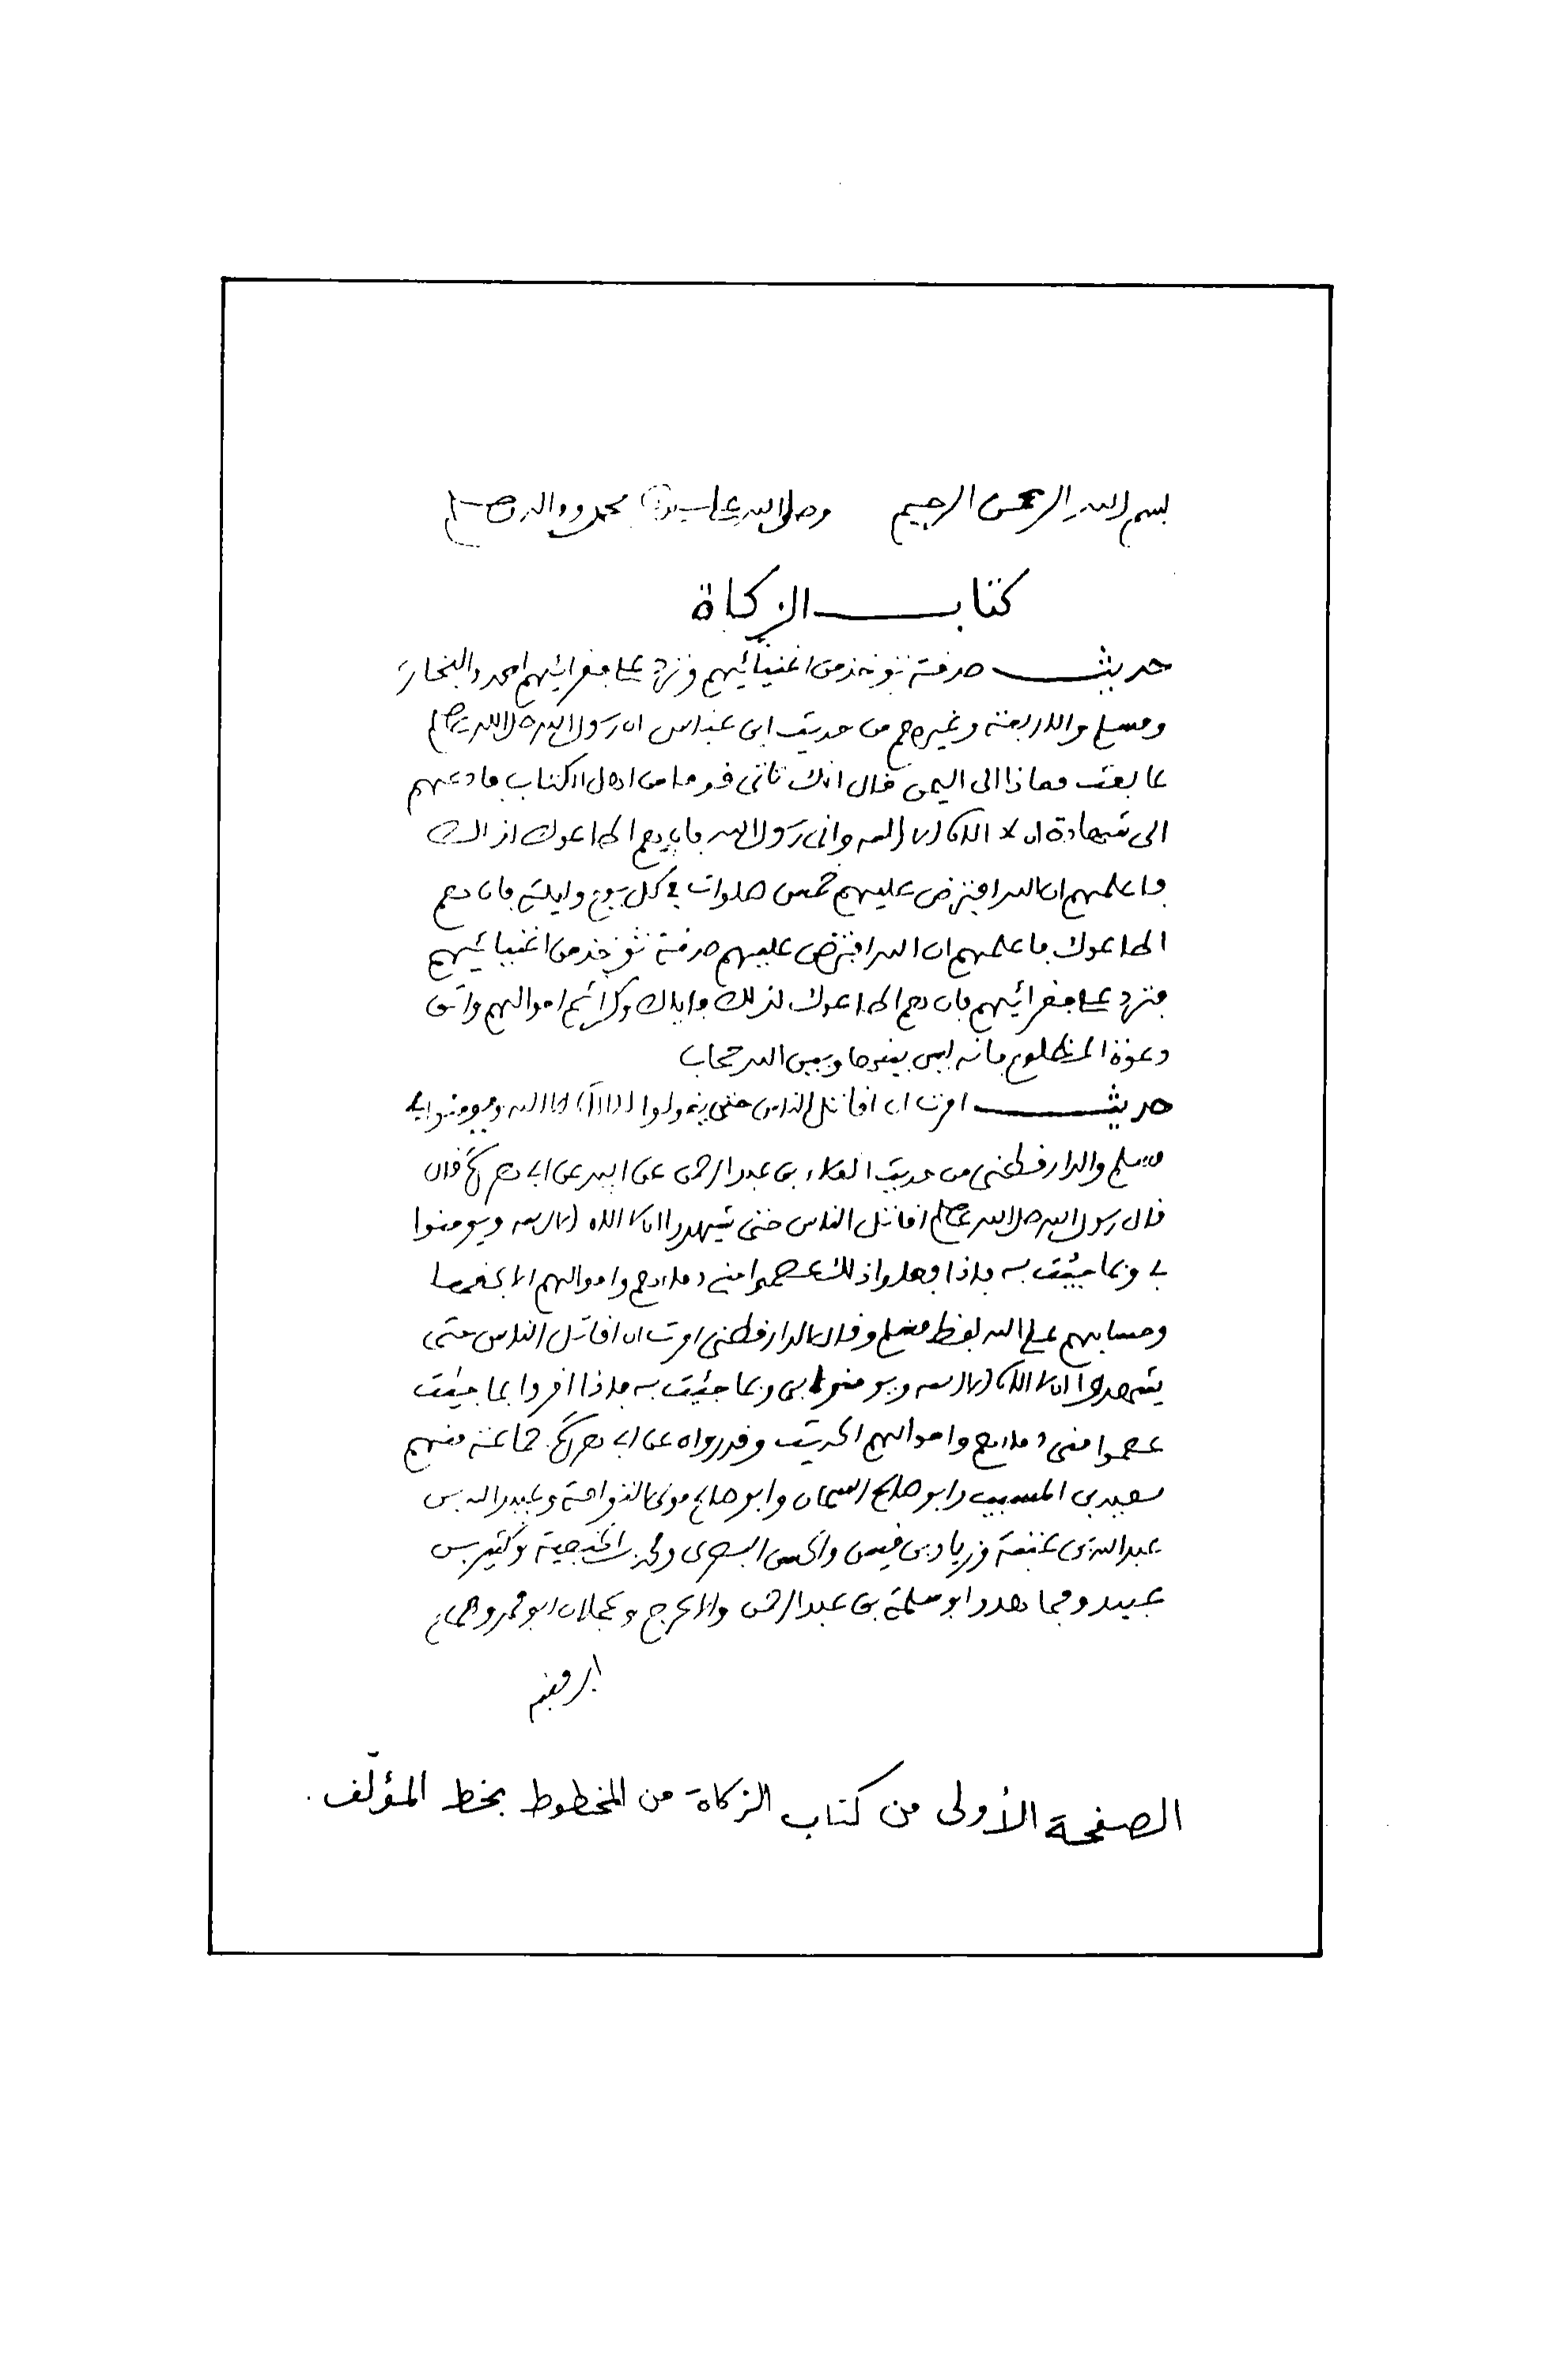 بسم الله الرحمن الرحيم وصلى الله على سيدنا محمد وءاله وصحبه وسلم
كتاب الزكاة
حديث صدقة تؤخذ من اغنيائهم وترد على فقرائهم احمد والبخارى
ومسلم والاربعة وغيرهم من حديث ابن عباس ان رسول الله صلى الله عليه وسلم
لما بعث معاذا الى اليمن قال انك تاتى قوما من اهل الكتاب فادعهم
الى شهادة ان لا الاه الا الله وانى رسول الله فان هم اطاعوك لذالك
فاعلمهم ان الله افترض عليهم خمس صلوات فى كل يوم وليلة فان هم
اطاعوك فاعلمهم ان الله افترض عليهم صدقة تؤخذ من اغنيائهم
فترد على فقرائهم فان هم اطاعوك لذلك فاياك وكرائم اموالهم واتق
دعوة المظلوم فانه ليس بينها وبين الله حجاب
حديث امرت ان اقاتل الناس حتى يقولوا لا الاه الا الله ويومنوا بى
مسلم والدارقطنى من حديث العلاء بن عبد الرحمن عن ابيه عن ابى هريرة قال
قال رسول الله صلى الله عليه وسلم اقاتل الناس حتى يشهدوا ان لا الاه الا الله ويومنوا
بى وبما جئت به فاذا فعلوا ذلك عصموا منى دماءهم واموالهم الا بحقها
وحسابهم على الله لفظ مسلم وقال الدارقطنى امرت ان اقاتل الناس حتى
يشهدوا ان لا الاه الا الله ويومنوا بى وبما جئت به فاذا اقروا بما جئت
عصموا منى دماءهم واموالهم الحديث وقد رواه عن ابى هريرة جماعة منهم
سعيد بن المسيب وابو صالح السمان وابو صالح مولى التوامة وعبيد الله بن
عبد الله بن عتبة وزياد بن قيس والحسن البصرى وكثير بن
عبيد ومجاهد وابو سلمة بن عبد الرحمن والاعرج وعجلان ابو محمد وهمام
ابن منبه
الصفحة الأولى من كتاب الزكاة من المخطوط بخط المؤلّف.